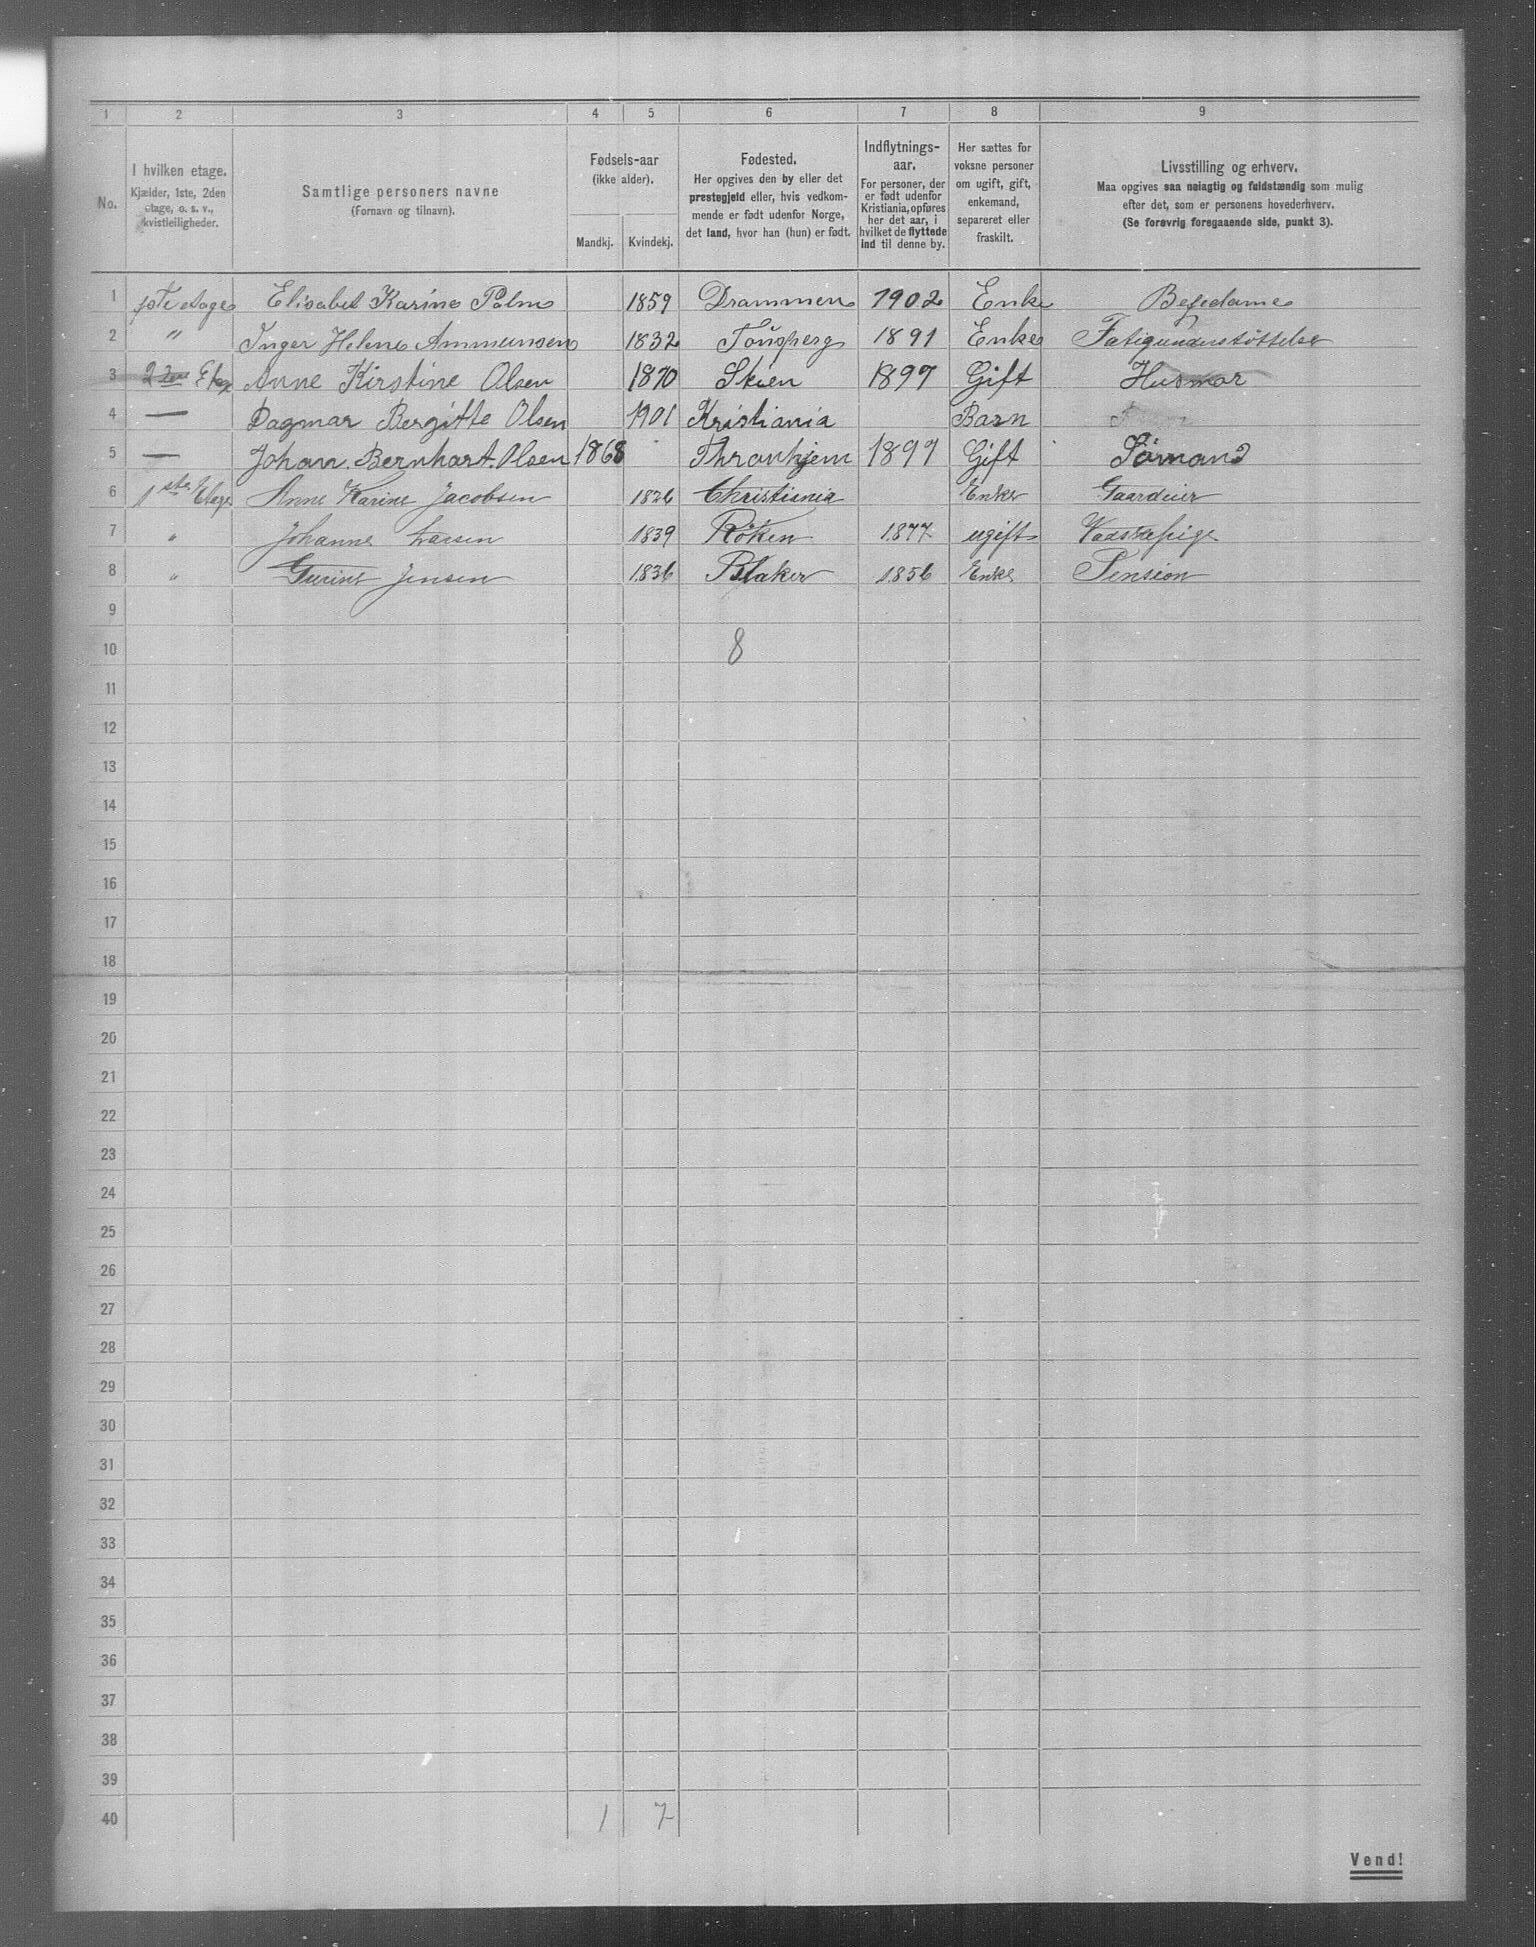 1 2 3 4 5 6 7 8 9
No.
I hvilken etage.
Kjælder, 1ste, 2den
etage, o. s. v.,
kvistleiligheder.
Samtlige personers navne
(Fornavn og tilnavn).
Fødsels-aar
(ikke alder).
Mandkj. Kvindekj.
Fødested.
Her opgives den by eller det
prestegjeld eller, hvis vedkom-
mende er født udenfor Norge,
det land, hvor han (hun) er født.
Indflytnings-
aar.
For personer, der
er født udenfor
Kristiania, opføres
her det aar, i
hvilket de flyttede
ind til denne by.
Her sættes for
voksne personer
om ugift, gift,
enkemand,
separeret eller
fraskilt.
Livsstilling og erhverv.
Maa opgives saa nøiagtig og fuldstændig som mulig
efter det, som er personens hovederhverv.
(Se forøvrig foregaaende side, punkt 3).
1 1ste etage Elisabet Karine Palm 1859 Drammen 1902 Enke
2 " Inger Helene Ammunsen 1832 Tønsberg 1891 Enke Fatigunderstøttelse
3 2den Etage Anne Kirstine Olsen 1870 Skien 1897 Gift Husmor
4 — Dagmar Bergitte Olsen 1901 Kristiania Barn
5 — Johan Bernhart Olsen 1868 Thronhjem 1897 Gift Sömand
6 1ste Etage Anne Karine Jacobsen 1826 Christiania Enke Gaardeier
7 " Johanne Larsen 1839 Röken 1877 ugift
8 " Gurine Jensen 1836 Blaker 1856 Enke Pension
9
8
10
11
12
13
14
15
16
17
18
19
20
21
22
23
24
25
26
27
28
29
30
31
32
33
34
35
36
37
38
39
40 1 7
Vend!